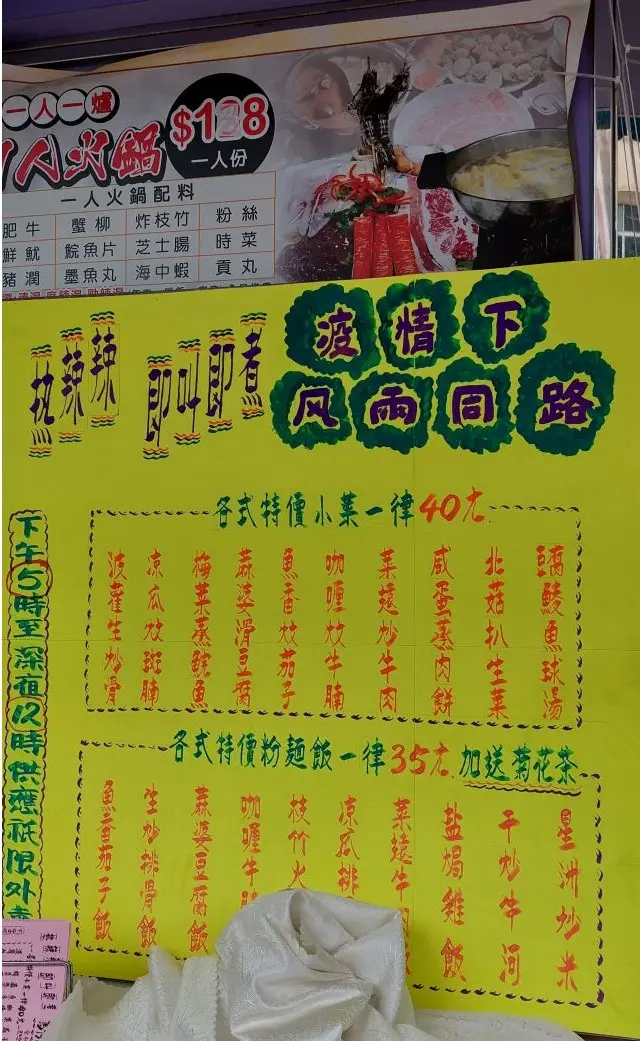 一人一爐
人火鍋
一人份
一人火鍋配料
肥牛 蟹柳 炸枝竹 粉絲
鮮魷 鯇魚片 芝士腸 時菜
豬潤 墨魚丸 海中蝦 貢丸
疫情下
风雨同路
执辣辣 即叫即煮
各式特價小菜一律40元
鯪魚球湯
北菇扒生菜
咸蛋蒸肉餅
菜遠炒牛肉
咖喱炆牛腩
魚香炆茄子
蔴婆滑豆腐
梅菜蒸鯇魚
凉瓜炆斑腩
波蘿生炒骨
各式特價粉麵飯一律35元 加送菊花茶
星洲炒米
干炒牛河
盐焗雞飯
菜遠牛
凉瓜排
枝竹火
咖喱牛
蔴婆豆腐飯
生炒排骨飯
魚香茄子飯
下午5時至深夜12時供應祇限外